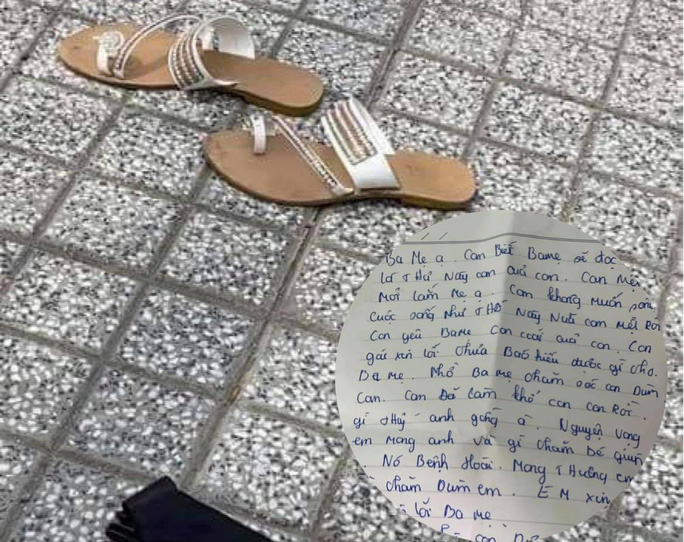 Ba Mẹ ạ. Con Biết Bame sẽ đọc
lá thư Này của con. Con Mệt
Mỏi lắm Mẹ ạ. Con không Muốn
Cuộc sống Như thế Này Nữa con mệt Rồi
Con yêu Bame con của con. Con
gái xin lỗi chưa Báo hiếu được gì cho.
Ba mẹ. Nhờ Ba mẹ chăm sóc con Dùm
Con. Con Đã làm khổ con con Rồi.
gì thuỷ anh à. Nguyện Vọng
em Mong anh Và gì chăm bé giùm
Nó Bệnh Hoài. Mong thương em
chăm Dùm em. EM xin
lỗi Ba mẹ
con